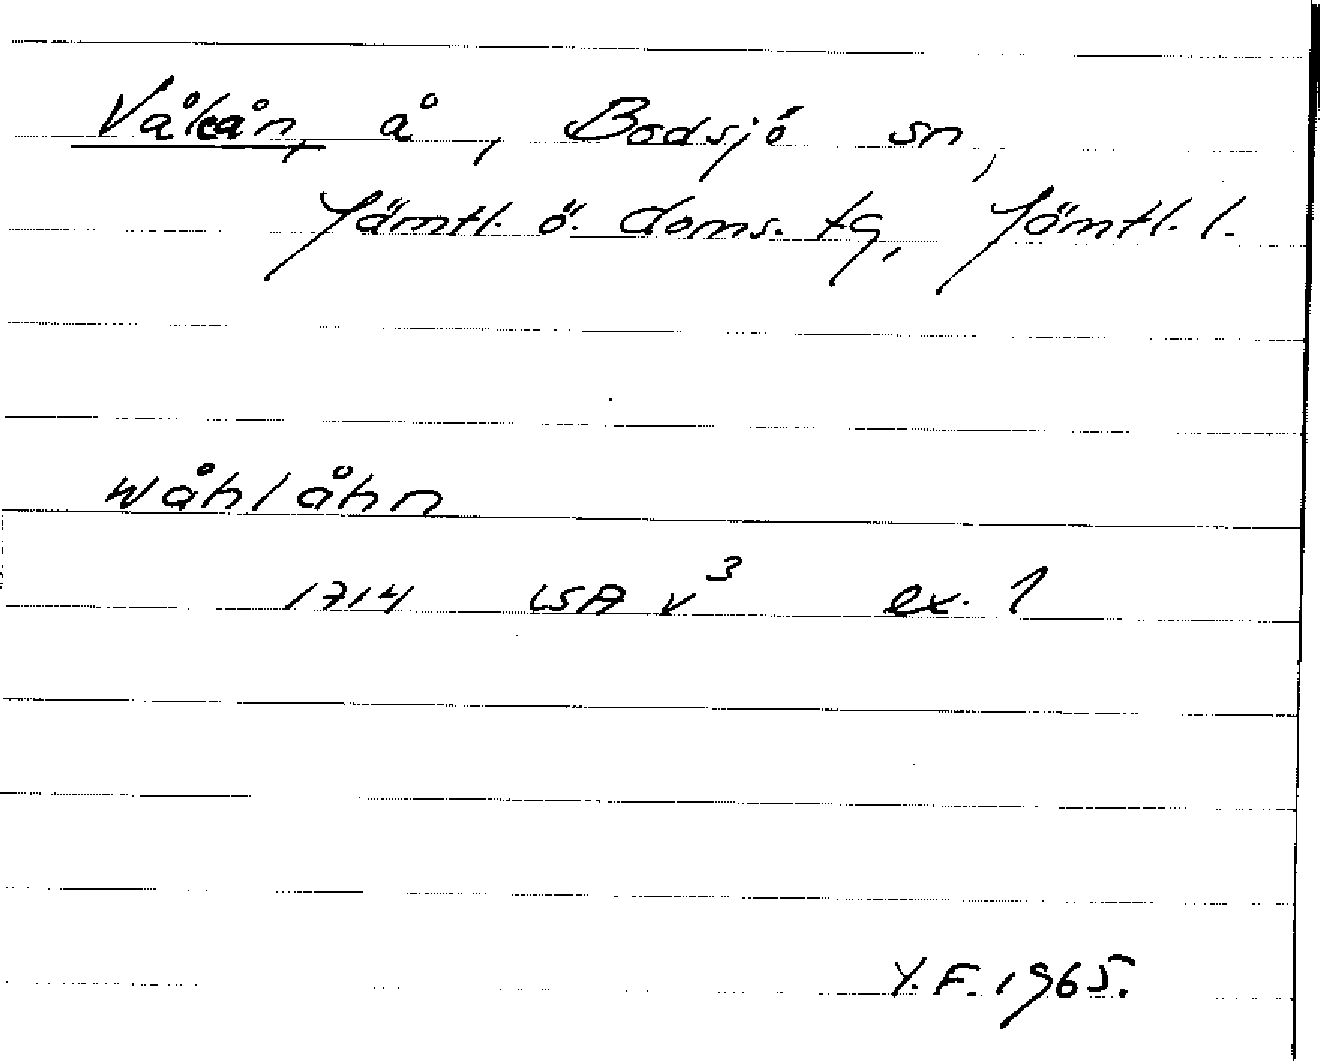 Vålån, å, Bodsjö sn,
Jämtl. ö. doms. tg, Jämtl. l.
Wåhlåhn
1714 LSA V³ ex. 1
Y.F. 1965.